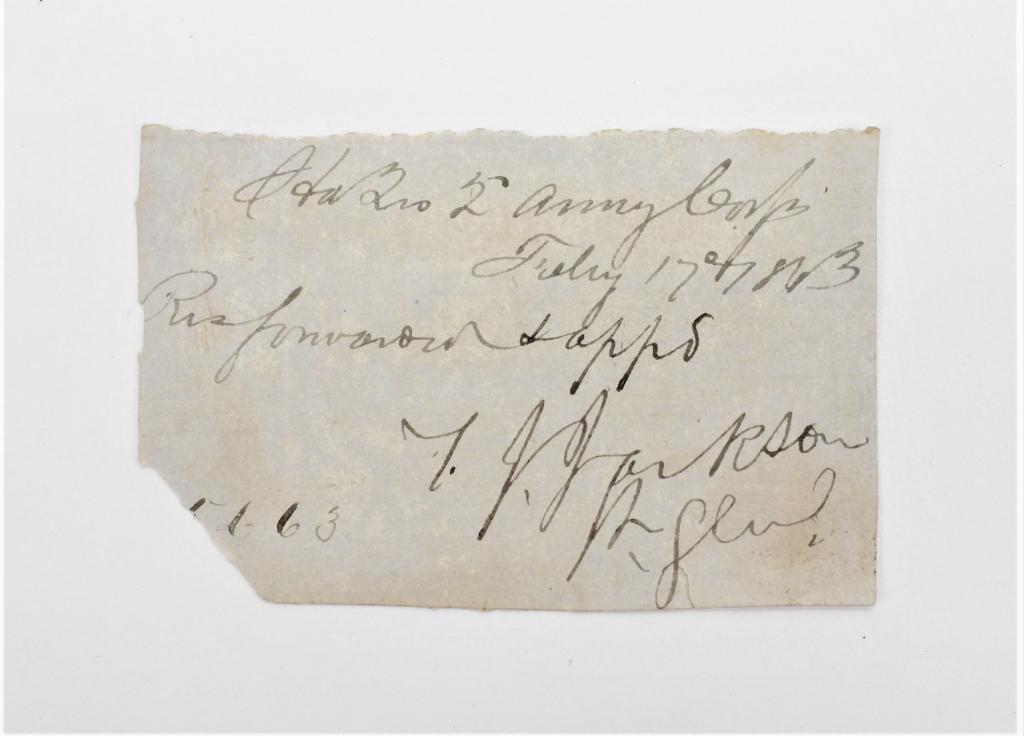 Hd Qrs 2 Army Corps
Feby 17th 1863
Res forwarded & appd
T. J. Jackson
Lt. Genl
63